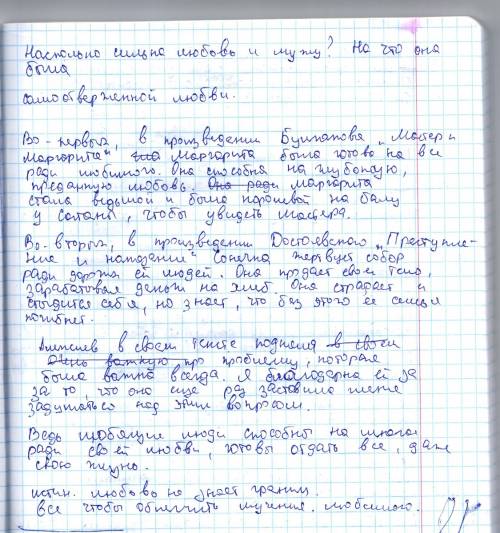 Насколько сильна любовь к мужу? На что она
была
самоотверженной любви.
Во-первых, в произведении Булгакова „Мастер и
Маргарита" Маргарита была готова на все
ради любимого. Она способна на глубокую,
преданную любовь. Она ради Маргарита
стала ведьмой и была королевой на балу
у сатаны, чтобы увидеть мастера.
Во-вторых, в произведении Достоевского „Преступле-
ние и наказание" Сонечка жертвует собой
ради дорогих ей людей. Она продает свое тело,
зарабатывая деньги на хлеб. Она страдает и
стыдится себя, но знает, что без этого ее семья
погибнет.
в своем тексте подняла в своем
очень важную про проблему, которая
была важна всегда. Я благодарна ей за
за то, что она еще раз заставила меня
задуматься над этим вопросом.
Ведь любящие люди способны на многое
ради своей любви, готовы отдать все, даже
свою жизнь.
истин. любовь не знает границ.
все чтобы облегчить мучения любимого.